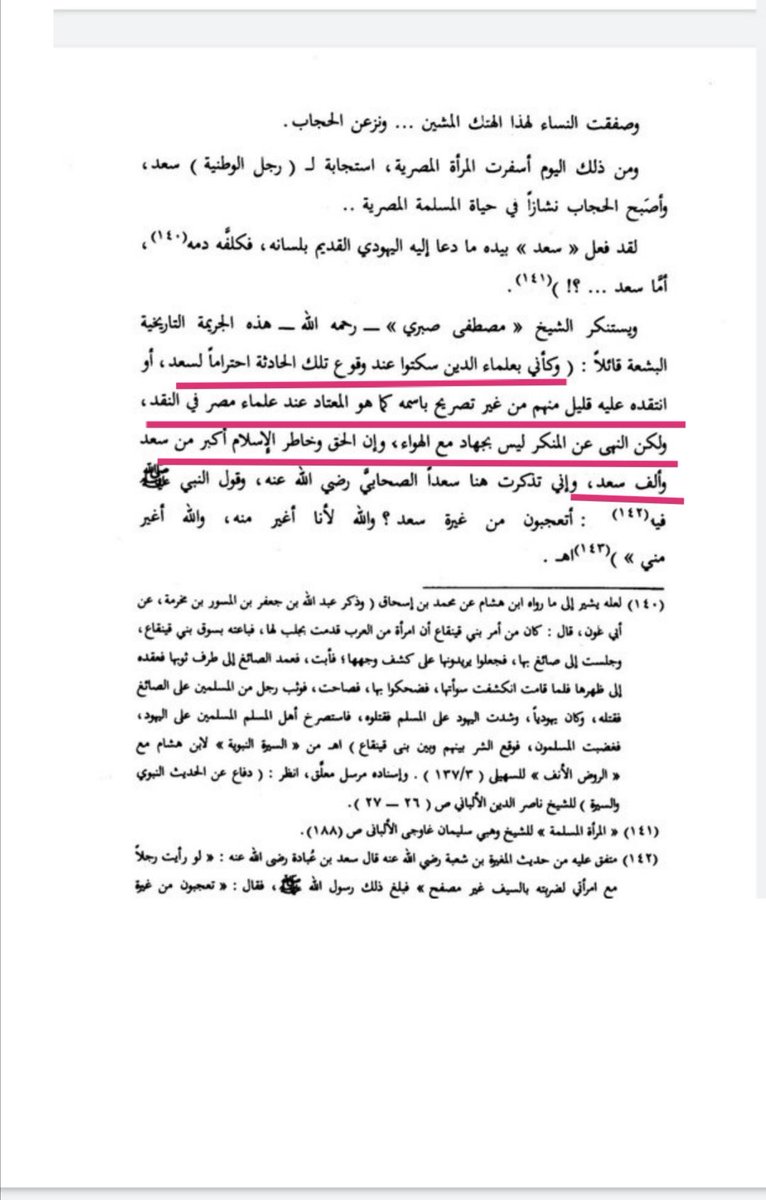 وصفقت النساء لهذا الهتك المشين ... ونزعن الحجاب.
ومن ذلك اليوم أسفرت المرأة المصرية، استجابة لـ ( رجل الوطنية ) سعد،
وأصبح الحجاب نشازاً في حياة المسلمة المصرية ..
لقد فعل « سعد » بيده ما دعا إليه اليهودي القديم بلسانه، فكلفَّه دمه(١٤٠)،
أمَّا سعد ... ؟! )(١٤١).
ويستنكر الشيخ « مصطفى صبري » – رحمه الله – هذه الجريمة التاريخية
البشعة قائلاً : ( وكأني بعلماء الدين سكتوا عند وقوع تلك الحادثة احتراماً لسعد، أو
انتقده عليه قليل منهم من غير تصريح باسمه كما هو المعتاد عند علماء مصر في النقد،
ولكن النهى عن المنكر ليس بجهاد مع الهواء، وإن الحق وخاطر الإسلام أكبر من سعد
وألف سعد، وإني تذكرت هنا سعداً الصحابيَّ رضي الله عنه، وقول النبي ﷺ
فيه(١٤٢) : أتعجبون من غيرة سعد ؟ والله لأنا أغير منه، والله أغير
مني » )(١٤٣)اهـ .
(١٤٠) لعله يشير إلى ما رواه ابن هشام عن محمد بن إسحاق ( وذكر عبد الله بن جعفر بن المسور بن مخرمة، عن
أبي عون، قال : كان من أمر بني قينقاع أن امرأة من العرب قدمت بجلب لها، فباعته بسوق بني قينقاع،
وجلست إلى صائغ بها، فجعلوا يريدونها على كشف وجهها؛ فأبت، فعمد الصائغ إلى طرف ثوبها فعقده
إلى ظهرها فلما قامت انكشفت سوأتها، فضحكوا بها، فصاحت، فوثب رجل من المسلمين على الصائغ
فقتله، وكان يهودياً، وشدت اليهود على المسلم فقتلوه، فاستصرخ أهل المسلم المسلمين على اليهود،
فغضبت المسلمون، فوقع الشر بينهم وبين بنى قينقاع ) اهـ من « السيرة النبوية » لابن هشام مع
« الروض الأنف » للسهيلي ( ١٣٧/٣ ) . وإسناده مرسل معلَّق، انظر : ( دفاع عن الحديث النبوي
والسيرة ) للشيخ ناصر الدين الألباني ص ( ٢٦ – ٢٧ ).
(١٤١) « المرأة المسلمة » للشيخ وهبي سليمان غاوجى الألبانى ص (١٨٨).
(١٤٢) متفق عليه من حديث المغيرة بن شعبة رضي الله عنه قال سعد بن عُبادة رضى الله عنه : « لو رأيت رجلاً
مع امرأتي لضربته بالسيف غير مصفح » فبلغ ذلك رسول الله ﷺ، فقال : « تعجبون من غيرة